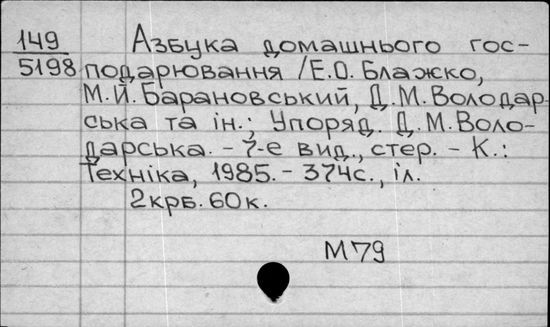 149 Азбука домашнього гос-
5198 подарювання /Е.О. Блажко,
М.Й. Барановський, Д.М. Володар-
ська та ін.; Упоряд. Д.М. Воло-
дарська. - 7-е вид., стер. - К.:
Техніка, 1985. - 374с., іл.
2крб. 60к.
М79